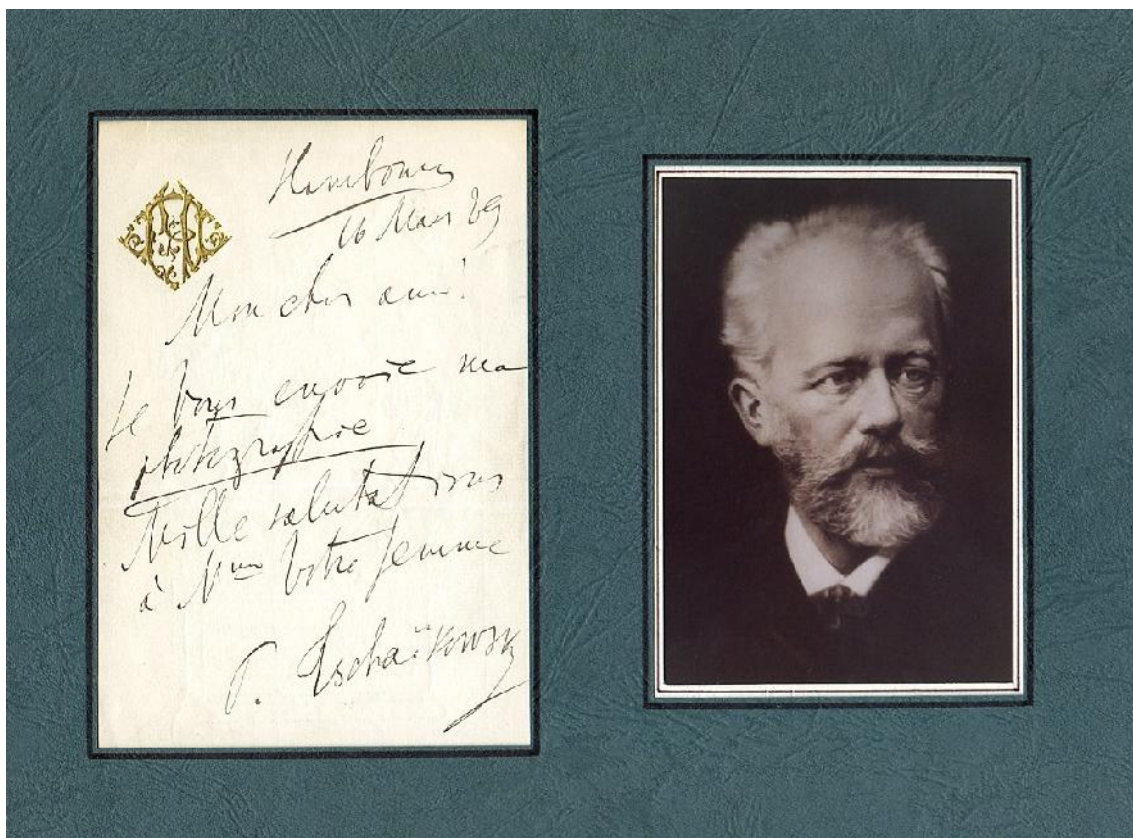 Hambourg
16 Mars 89
Mon cher ami!
Je vous envoie ma
photographie.
Mille salutations
à Mme Votre femme
P. Tschaïkowsky